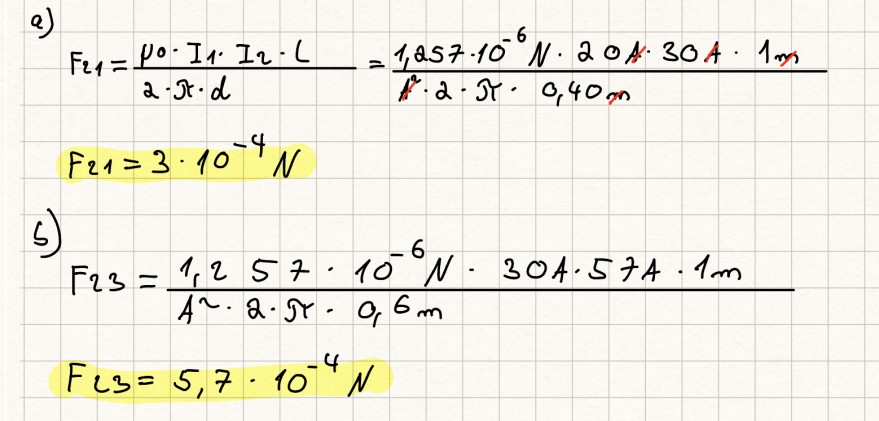 a)
F21 = μ0 · I1 · I2 · L / 2 · π · d = 1,257 · 10⁻⁶ N · 20 A · 30 A · 1 m / A² · 2 · π · 0,40 m
F21 = 3 · 10⁻⁴ N
b)
F23 = 1,257 · 10⁻⁶ N · 30A · 57A · 1m / A² · 2 · π · 0,6 m
F23 = 5,7 · 10⁻⁴ N